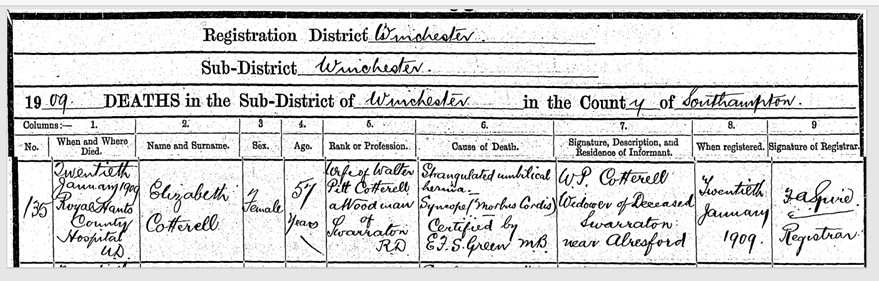 Registration District Winchester.
Sub-District Winchester.
1909. DEATHS in the Sub-District of Winchester in the County of Southampton.
Columns:— 1. 2. 3 4. 5. 6. 7. 8. 9
No. When and Where Died. Name and Surname. Sex. Age. Rank or Profession. Cause of Death. Signature, Description, and Residence of Informant. When registered. Signature of Registrar.
135
Twentieth
January 1909
Royal Hants
County
Hospital
U.D.
Elizabeth
Cotterell
Female
57
years
Wife of Walter
Pitt Cotterell
a Woodman
of
Swarraton
R.D
Strangulated umbilical
hernia.
Syncope (Morbus Cordis)
Certified by
E.F.S. Green M.B.
W.P. Cotterell
Widower of Deceased
Swarraton
near Alresford
Twentieth
January
1909.
Registrar